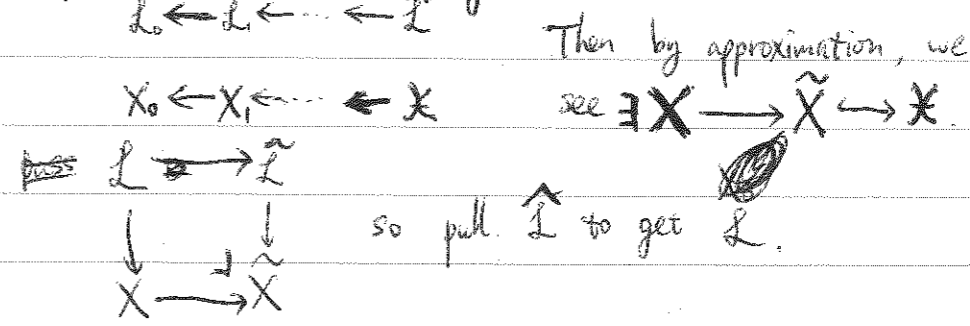 ℒ₀ ← ℒ₁ ← ⋯ ← ℒ
Then by approximation, we
X₀ ← X₁ ← ⋯ ← 𝔛 see ∃ X → X̃ ↔ 𝔛.
ℒ → ℒ̃
so pull ℒ̂ to get ℒ.
X → X̃